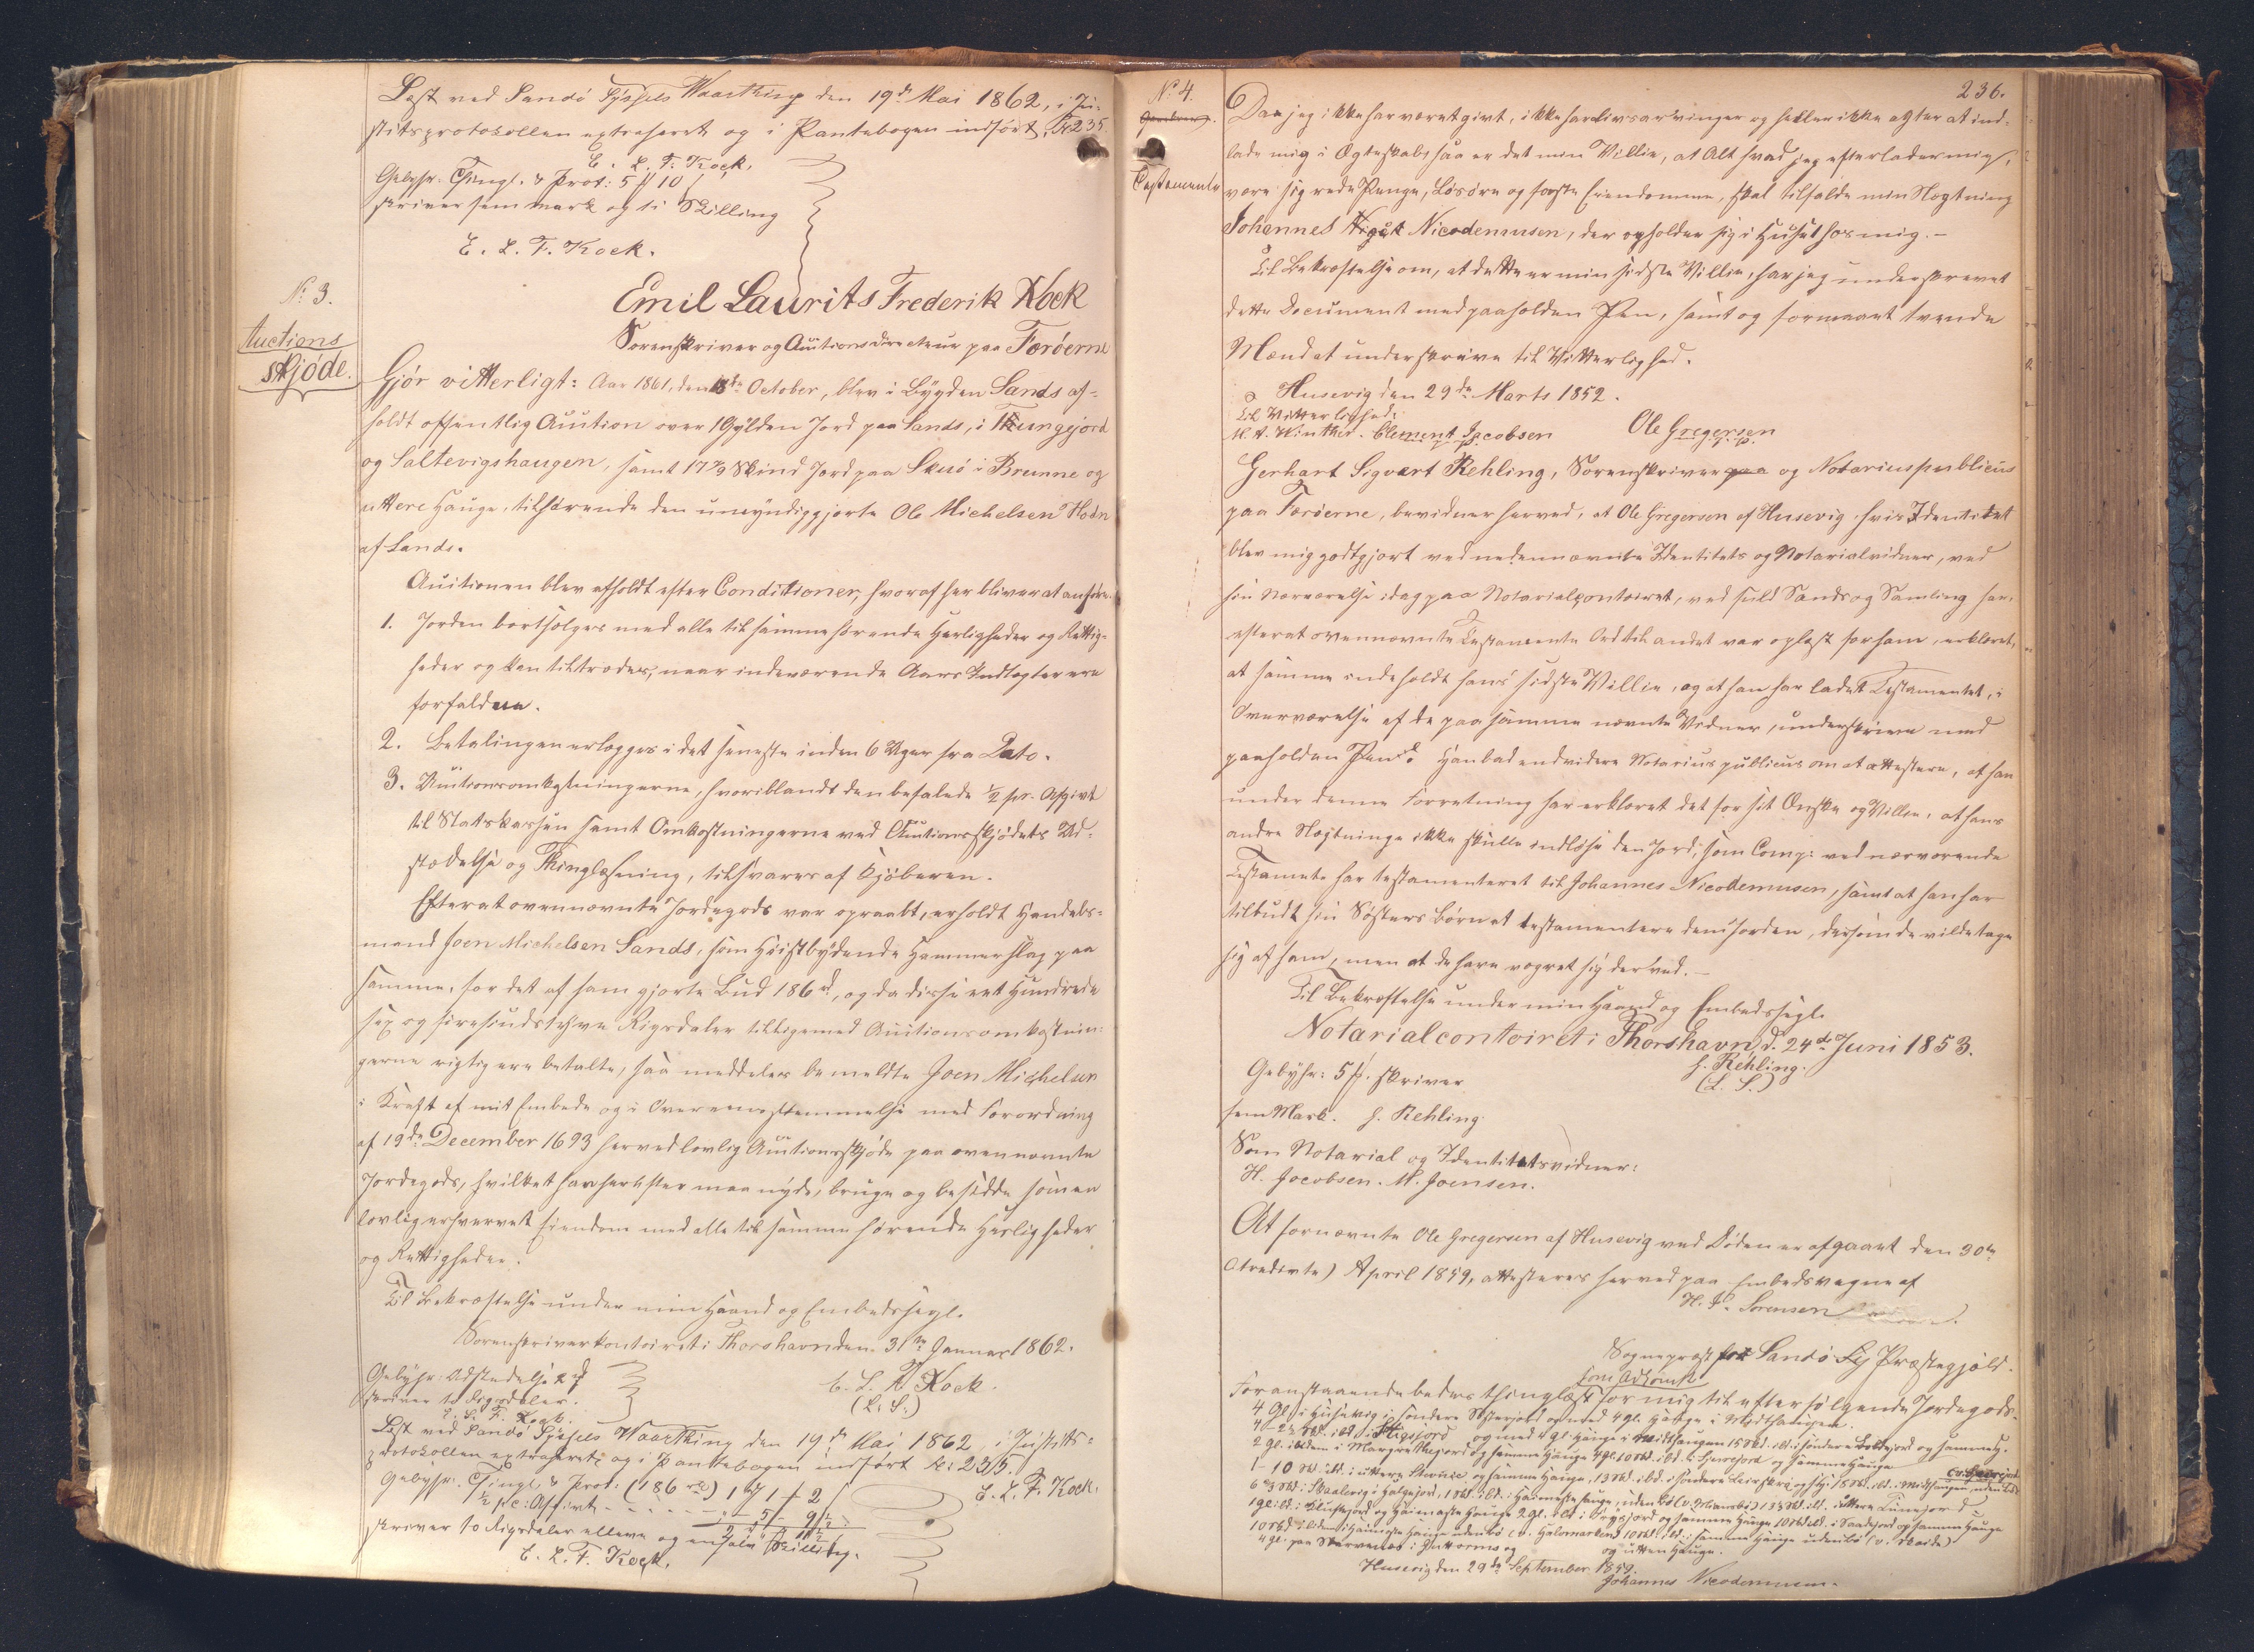 Læst ved Sandø Syssels Waarthing den 19de Mai 1862, i Ju-
stitsprotokollen extraheret og i Pantebogen indført Fol. 235.
E. L. F. Kock.
Gebyhr: Thingl. & Prot: 5 ℔ 10 ß
skriver fem mark og ti Skilling
E. L. F. Kock.
No 3.
Auctions
skjøde.
Emil Laurits Frederik Kock
Sorenskriver og Auctionsdirecteur paa Færøerne
Gjør vitterligt: Aar 1861, den 18de October, blev i Bygden Sands af-
holdt offentlig Auction over 1 Gylden Jord paa Sands, i Thungejord
og Saltevigshaugen, samt 17 7/9 Skind Jord paa Skuø i Brunne og
uttere Hauge, tilhørende den umyndiggjorte Ole Michelsen Hodn
af Sands.
Auctionen blev afholdt efter Conditioner, hvoraf her bliver at anføre.
1. Jorden bortsælges med alle til samme hørende Herligheder og Rettig-
heder og kan tiltrædes, naar indeværende Aars Indtægter ere
forfaldne.
2. Betalingen erlægges i det seneste inden 6 Uger fra Dato.
3. Auctionsomkostningerne, hvoriblandt den befalede ½ pr. Afgivt
til Statskassen samt Omkostningerne ved Auctionsskjødets Ud-
stædelse og Thinglæsning, tilsvares af Kjøberen.
Efterat ovennævnte Jordegods var opraabt, erholdt Handels-
mand Joen Michelsen Sands, som Høistbydende Hammerslag paa
samme, for det af ham gjorte Bud 186 rd, og da disse eet Hundrede
sex og firesindstyve Rigsdaler tilligemed Auctionsomkostnin-
gerne rigtig ere betalte, saa meddeles bemeldte Joen Michelsen
i Kraft af mit Embede og i Overensstemmelse med Forordning
af 19de December 1693 herved lovlig Auctionsskjøde paa ovennævnte
Jordegods, hvilket han herefter maa nyde, bruge og besidde som en
lovlig erhvervet Eiendom med alle til samme hørende Herligheder
og Rettigheder.
Til Bekræftelse under min Haand og Embedssegl.
Sorenskriverkontoiret i Thorshavn den 31te Januar 1862.
Gebyhr: Udstædelse 2 rd
skriver to Rigsdaler.
E. L. F. Kock.
E. L. F. Kock.
(L. S.)
Læst ved Sandø Syssels Waarthing den 19de Mai 1862, i Justits-
protokollen extraheret og i Pantebogen indført Fol. 235.
E. L. F. Kock.
Gebyhr: Thingl. & Prot. (186 rd) 1 rd 1 ℔ 2
½ pc: Afgivt
skriver to Rigsdaler elleve og en halv Skilling.
E. L. F. Kock.
236.
No 4.
Testamente
Daa jeg ikke har været givt, ikke har Livsarvinger og heller ikke agter at ind-
lade mig i Ægteskab, saa er det min Villie, at Alt hvad jeg efterlader mig,
være sig rede Penge, Løsøre og faste Eiendomme, skal tilfalde min Slegtning
Johannes Nicodemusen, der opholder sig i Huset hos mig.-
Til Bekræftelse om, at dette er min sidste Villie, har jeg underskrevet
dette Document med paaholden Pen, samt og formaaet tvende
Mænd at underskrive til Vitterlighed.
Husevig den 29de Marts 1852.
Til Vitterlighed:
M. A. Winther. Clement Jacobsen Ole Gregersen
Gerhart Sigvart Rehling, Sorenskriver og Notarius publicus
paa Færøerne, bevidner herved, at Ole Gregersen af Husevig hvis Identitet
blev mig godtgjort ved nedennævnte Identitets og Notarialvidner, ved
sin Nærværelse idag paa Notarialcontoiret, ved fuld Sands og Samling har,
efterat ovennævnte Testamente Ord til andet var oplæst for ham, erklæret,
at samme indeholdt hans sidste Villie, og at han har ladet Testamentet, i
Overværelse af de paa samme nævnte Vidner, underskrive med
paaholden Pen. Han bad endvidere Notarius publicus om at attestere, at han
under denne Forretning har erklæret det for sit Ønske og Villie, at hans
andre Slegtninge ikke skulle indløse den Jord, som Comp: ved nærværende
Testamente har testamenteret til Johannes Nicodemusen, samt at han har
tilbudt sin Søsters Børn at testamentere dem Jorden, dersom de vilde tage
sig af ham, men at de have vægret sig derved.-
Til Bekræftelse under min Haand og Embedssegl.
Notarialcontoiret i Thorshavn, d. 24de Juni 1853.
G. Rehling.
(L. S.)
Gebyhr: 5 ℔. skriver
fem Mark. G. Rehling
Som Notarial og Identitetsvidner:
H. Jacobsen. M. Joensen.
At fornævnte Ole Gregersen af Husevig ved Døden er afgaaet den 30te
(tredivte) April 1859, attesteres herved paa Embedsvegne af
H. P. Sørensen
Sognepræst for Sandø Præstegjæld.
som Adkomst
Foranstaaende bedes thinglæst for mig til efterfølgende Jordegods.
Husevig den 29de September 1859.
Johannes Nicodemusen.